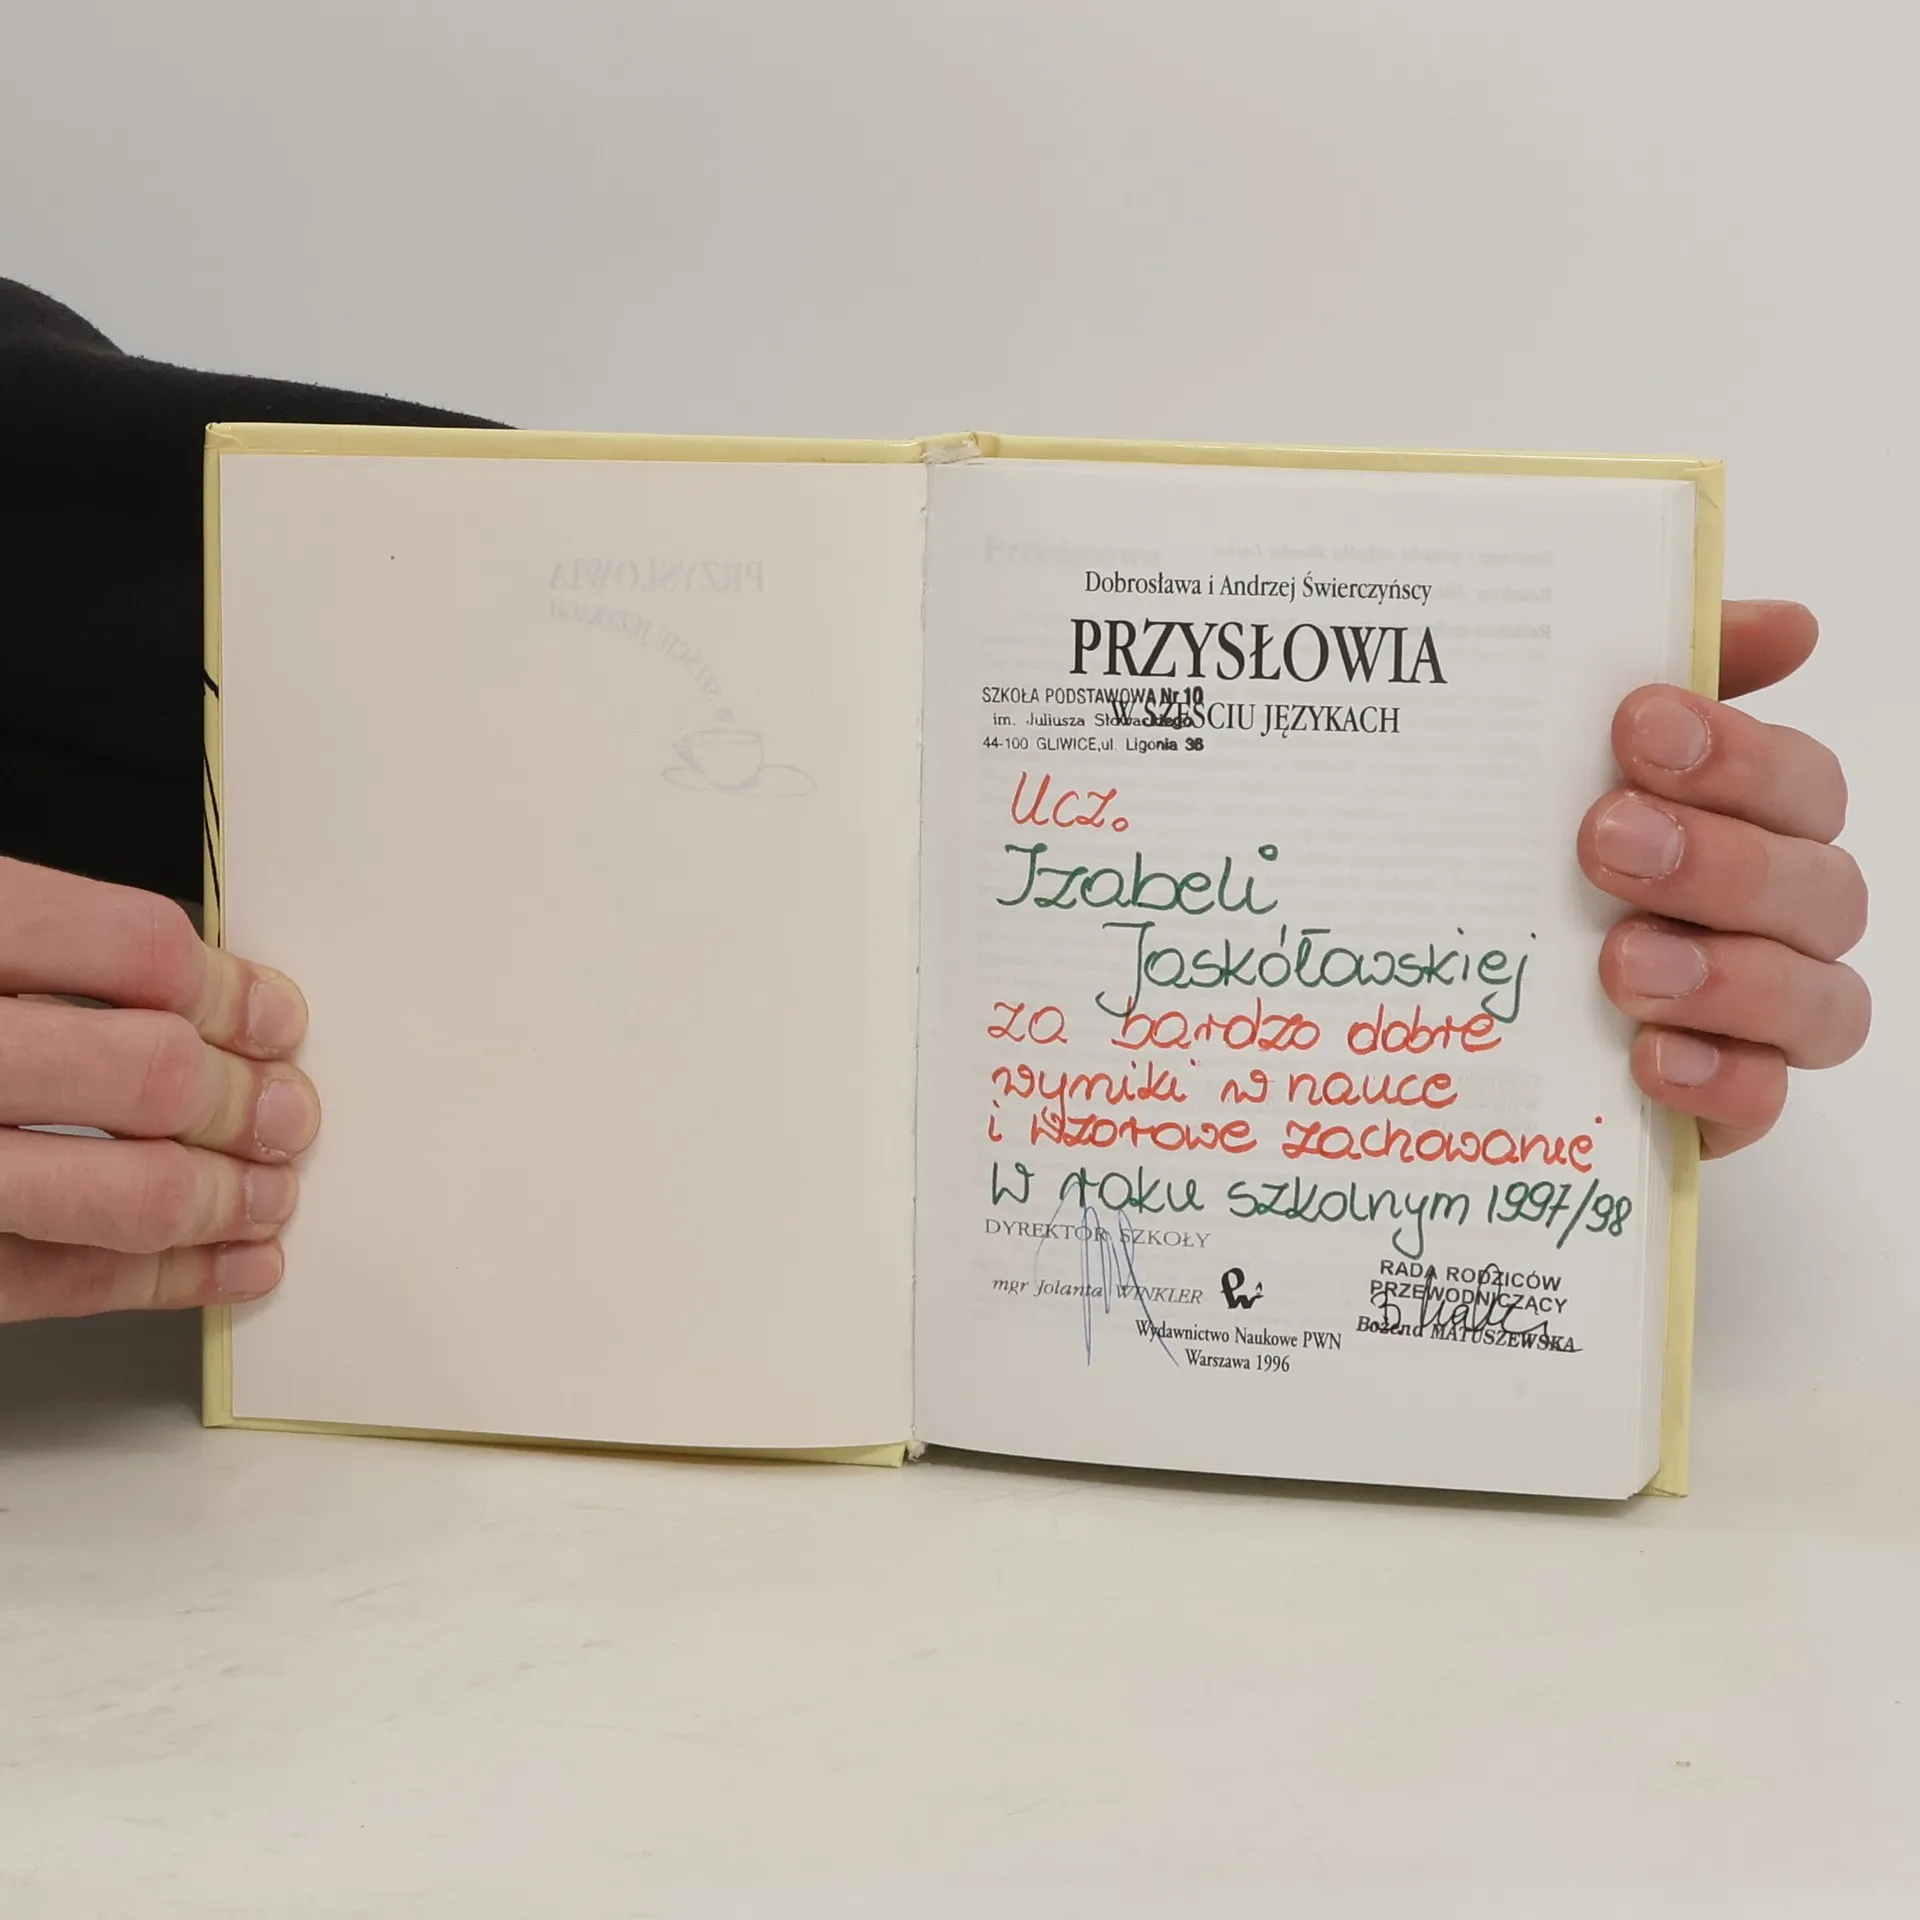 Dobrosława i Andrzej Świerczyńscy
PRZYSŁOWIA
W SZEŚCIU JĘZYKACH
SZKOŁA PODSTAWOWA Nr 10
im. Juliusza Słowackiego
44-100 GLIWICE, ul. Ligonia 36
Ucz.
Izabeli
Jaskółowskiej
za bardzo dobre
wyniki w nauce
i wzorowe zachowanie
w roku szkolnym 1997/98
DYREKTOR SZKOŁY
mgr Jolanta WINKLER
RADA RODZICÓW
PRZEWODNICZĄCY
Bożena MATUSZEWSKA
Wydawnictwo Naukowe PWN
Warszawa 1996